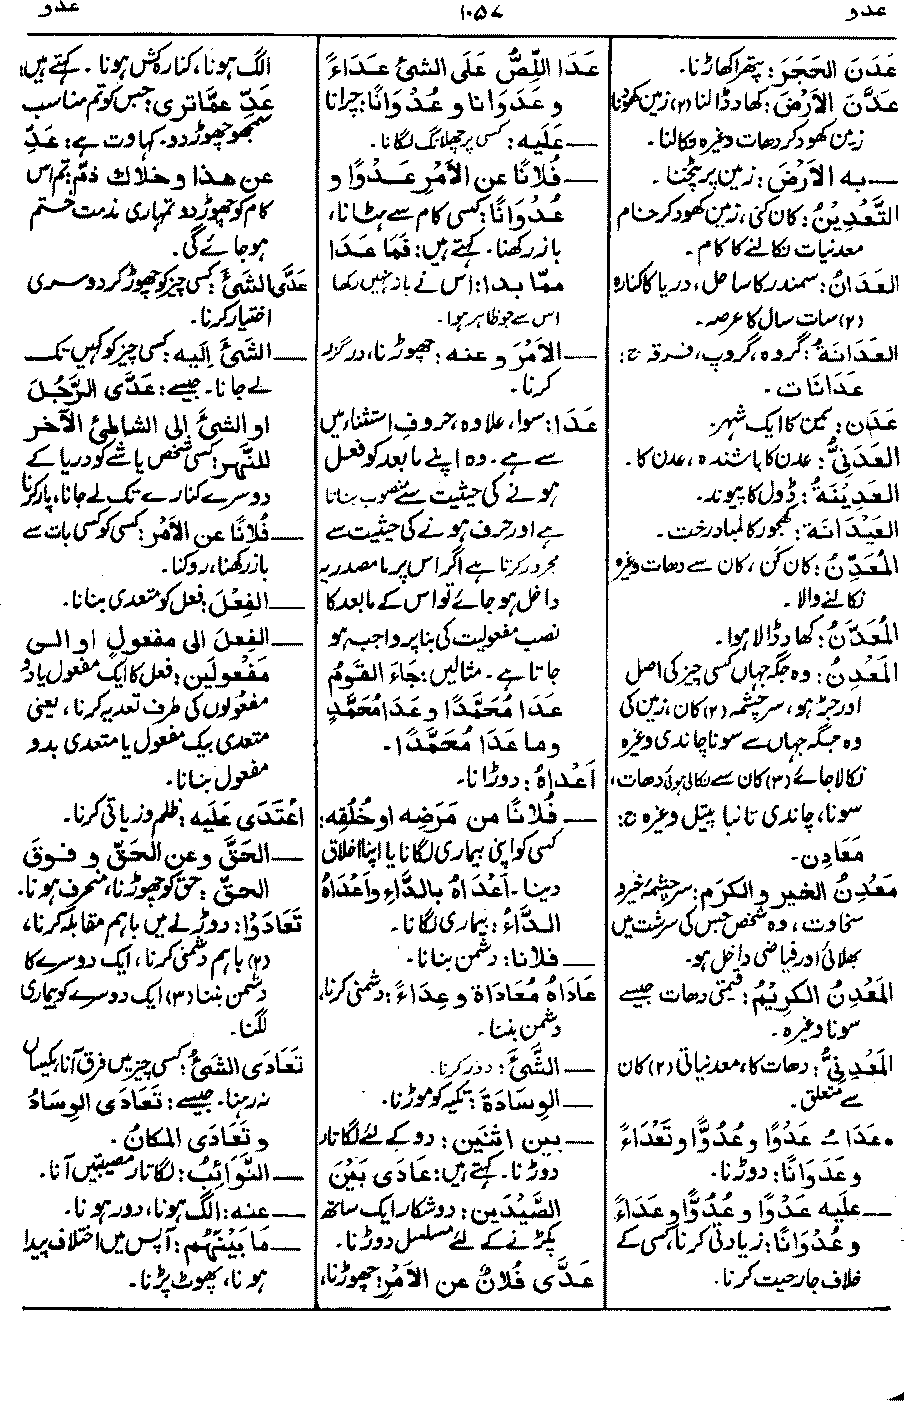 عدو
۱۰۵۷
عدو
عَدَنَ الحَجَرَ: پتھر اکھاڑنا۔
عَدَّنَ الاَرْضَ: کھاد ڈالنا (۲) زمین کھودنا
زمین کھود کر دھات وغیرہ نکالنا۔
ــ بہ الاَرْضَ: زمین پر پٹخنا۔
التَّعْدِيْنُ: کان کنی، زمین کھود کر خام
معدنیات نکالنے کا کام۔
العَدَانُ: سمندر کا ساحل، دریا کا کنارہ
(۲) سات سال کا عرصہ۔
العَدَانَةُ: گروہ، گروپ، فرقہ ج:
عَدَانَات۔
عَدَن: یمن کا ایک شہر۔
العَدَنِيُّ: عدن کا باشندہ، عدن کا۔
العَدِيْنَةُ: ڈول کا پیوند۔
العَيْدَانَة: کھجور کا لمبا درخت۔
المُعَدِّنُ: کان کن، کان سے دھات وغیرہ
نکالنے والا۔
المُعَدَّنُ: کھاد ڈالا ہوا۔
المَعْدِنُ: وہ جگہ جہاں کسی چیز کی اصل
اور جڑ ہو، سرچشمہ (۲) کان، زمین کی
وہ جگہ جہاں سے سونا چاندی وغیرہ
نکالا جائے (۳) کان سے نکالی ہوئی دھات،
سونا، چاندی تانبا پیتل وغیرہ ج:
مَعَادِن۔
مَعْدِنُ الخَيرِ والكَرَم: سرچشمۂ خیر و
سخاوت، وہ شخص جس کی سرشت میں
بھلائی اور فیاضی داخل ہو۔
المَعْدِنُ الكَرِيْمُ: قیمتی دھات جیسے
سونا وغیرہ۔
المَعْدِنِيُّ: دھات کا، معدنیاتی (۲) کان
سے متعلق۔
• عَدَا ـُ عَدْوًا وعُدُوًّا وتَعْدَاءً
وعَدَوَانًا: دوڑنا۔
ــ عليه عَدْوًا وعُدُوًّا وعَدَاءً
وعُدْوَانًا: زیادتی کرنا، کسی کے
خلاف جارحیت کرنا۔
عَدَا اللِّصُّ عَلَى الشئ عَدَاءً
وعَدَوَانا وعُدْوَانًا: چرانا
ــ عَلَيه: کسی پر چھلانگ لگانا۔
ــ فُلَانًا عن الاَمْرِ عَدْوًا و
عُدْوَانًا: کسی کام سے ہٹانا،
باز رکھنا۔ کہتے ہیں: فَمَا عَدَا
ممّا بدا: اس نے باز نہیں رکھا
اس سے جو ظاہر ہوا۔
ــ الاَمْرَ وعنه: چھوڑنا، درگزر
کرنا۔
عَدَا: سوا، علاوہ، حروفِ استثناء میں
سے ہے۔ وہ اپنے مابعد کو فعل
ہونے کی حیثیت سے منصوب بناتا
ہے اور حرف ہونے کی حیثیت سے
مجرور کرتا ہے اگر اس پر ما مصدریہ
داخل ہو جائے تو اس کے مابعد کا
نصب مفعولیت کی بنا پر واجب ہو
جاتا ہے۔ مثالیں: جَاءَ القَوْمُ
عَدَا مُحَمَّدًا وعَدَا مُحَمَّدٍ
وما عَدَا مُحَمَّدًا۔
اَعْدَاهُ: دوڑانا۔
ــ فُلَانًا من مَرَضِه او خُلُقِه:
کسی کو اپنی بیماری لگانا یا اپنا اخلاق
دینا۔ اَعْدَاهُ بالدَّاءِ واَعْدَاهُ
الدَّاءُ: بیماری لگانا۔
ــ فلانا: دشمن بنانا۔
عَادَاهُ مُعَادَاةً وعِدَاءً: دشمنی کرنا،
دشمن بننا۔
ــ الشَّئَ: دور کرنا۔
ــ الوِسَادَةَ: تکیہ کو موڑنا۔
ــ بين اثْنَين: دو کے لئے لگاتار
دوڑنا۔ کہتے ہیں: عَادَى بَيْنَ
الصَّيْدَين: دو شکار ایک ساتھ
پکڑنے کے لئے مسلسل دوڑنا۔
عَدَّى فُلَانٌ عن الاَمْرِ: چھوڑنا،
الگ ہونا، کنارہ کش ہونا۔ کہتے ہیں:
عَدِّ عمَّا ترى: جس کو تم مناسب
سمجھو چھوڑ دو۔ کہاوت ہے: عَدِّ
عن هذا وخلاك ذمّ: تم اس
کام کو چھوڑ دو تمہاری مذمت ختم
ہو جائے گی۔
عَدَّى الشَّئَ: کسی چیز کو چھوڑ کر دوسری
اختیار کرنا۔
ــ الشَّئَ اِليه: کسی چیز کو کہیں تک
لے جانا۔ جیسے: عَدَّى الرَّجُلَ
او الشئَ إلى الشاطئ الآخر
للنَّهر: کسی شخص یا شے کو دریا کے
دوسرے کنارے تک لے جانا، پار کرنا
ــ فُلَانًا عن الاَمْرِ: کسی کو کسی بات سے
باز رکھنا، روکنا۔
ــ الفِعْلَ: فعل کو متعدی بنانا۔
ــ الفعلَ الى مفعولٍ او الى
مَفْعُولَين: فعل کا ایک مفعول یا دو
مفعولوں کی طرف تعدیہ کرنا، یعنی
متعدی بیک مفعول یا متعدی بدو
مفعول بنانا۔
اعْتَدَى عَلَيه: ظلم و زیاتی کرنا۔
ــ الحَقَّ وعن الحَقّ و فوقَ
الحقّ: حق کو چھوڑنا، منحرف ہونا۔
تَعَادَوْا: دوڑنے میں باہم مقابلہ کرنا،
(۲) باہم دشمنی کرنا، ایک دوسرے کا
دشمن بننا (۳) ایک دوسرے کو بیماری
لگنا۔
تَعَادَى الشئُ: کسی چیز میں فرق آنا، یکساں
نہ رہنا۔ جیسے: تَعَادَى الوِسَادُ
وتَعَادَى المكانُ۔
ــ النَّوَائِبُ: لگاتار مصیبتیں آنا۔
ــ عنه: الگ ہونا، دور ہونا۔
ــ مَا بَيْنَهُم: آپس میں اختلاف پیدا
ہونا، پھوٹ پڑنا۔